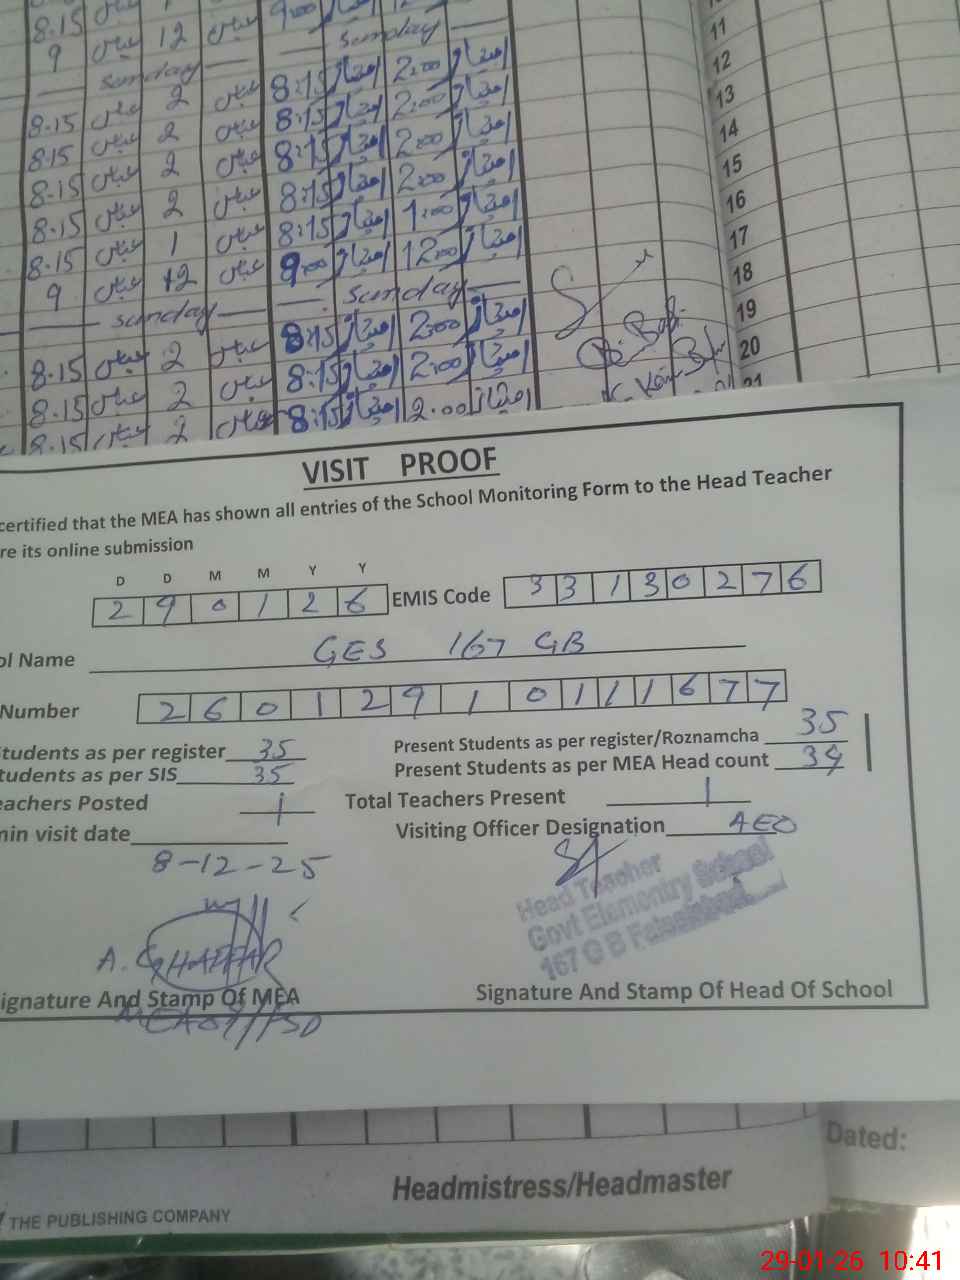 8.15 عباس
9 عباس 12 عباس 9:00
sunday sunday
8.15 عباس 2 عباس 8:15 امتیاز 2:00 امتیاز
8.15 عباس 2 عباس 8:15 امتیاز 2:00 امتیاز
8.15 عباس 2 عباس 8:15 امتیاز 2:00 امتیاز
8.15 عباس 2 عباس 8:15 امتیاز 2:00 امتیاز
8.15 عباس 1 عباس 8:15 امتیاز 1:00 امتیاز
9 عباس 12 عباس 9:00 امتیاز 12:00 امتیاز
sunday sunday
8.15 عباس 2 عباس 8:15 امتیاز 2:00 امتیاز
8.15 عباس 2 عباس 8:15 امتیاز 2:00 امتیاز
8.15 عباس 2 عباس 8:15 امتیاز 2:00 امتیاز
11
12
13
14
15
16
17
18
19
20
21
VISIT PROOF
certified that the MEA has shown all entries of the School Monitoring Form to the Head Teacher
re its online submission
D D M M Y Y
2 9 0 1 2 6 EMIS Code 3 3 1 3 0 2 7 6
ol Name GES 167 GB
Number 2 6 0 1 2 9 1 0 1 1 1 6 7 7
Students as per register 35 Present Students as per register/Roznamcha 35
tudents as per SIS 35 Present Students as per MEA Head count 34
eachers Posted 1 Total Teachers Present 1
min visit date Visiting Officer Designation AEO
8-12-25
Head Teacher
Govt Elementry School
167 G B Faisalabad
A. GHAFFAR
ignature And Stamp Of MEA Signature And Stamp Of Head Of School
Dated:
Headmistress/Headmaster
THE PUBLISHING COMPANY
29-01-26 10:41